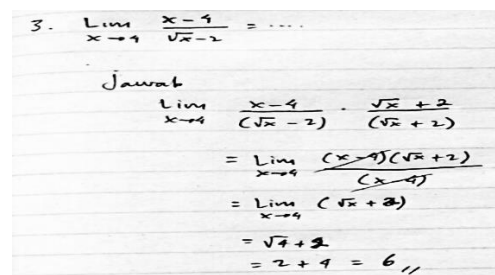 3. Lim x→4 (x-4)/(√x-2) = ....
Jawab
Lim x→4 (x-4)/(√x-2) · (√x+2)/(√x+2)
= Lim x→4 (x-4)(√x+2)/(x-4)
= Lim x→4 (√x+2)
= √4+2
= 2+4 = 6,,